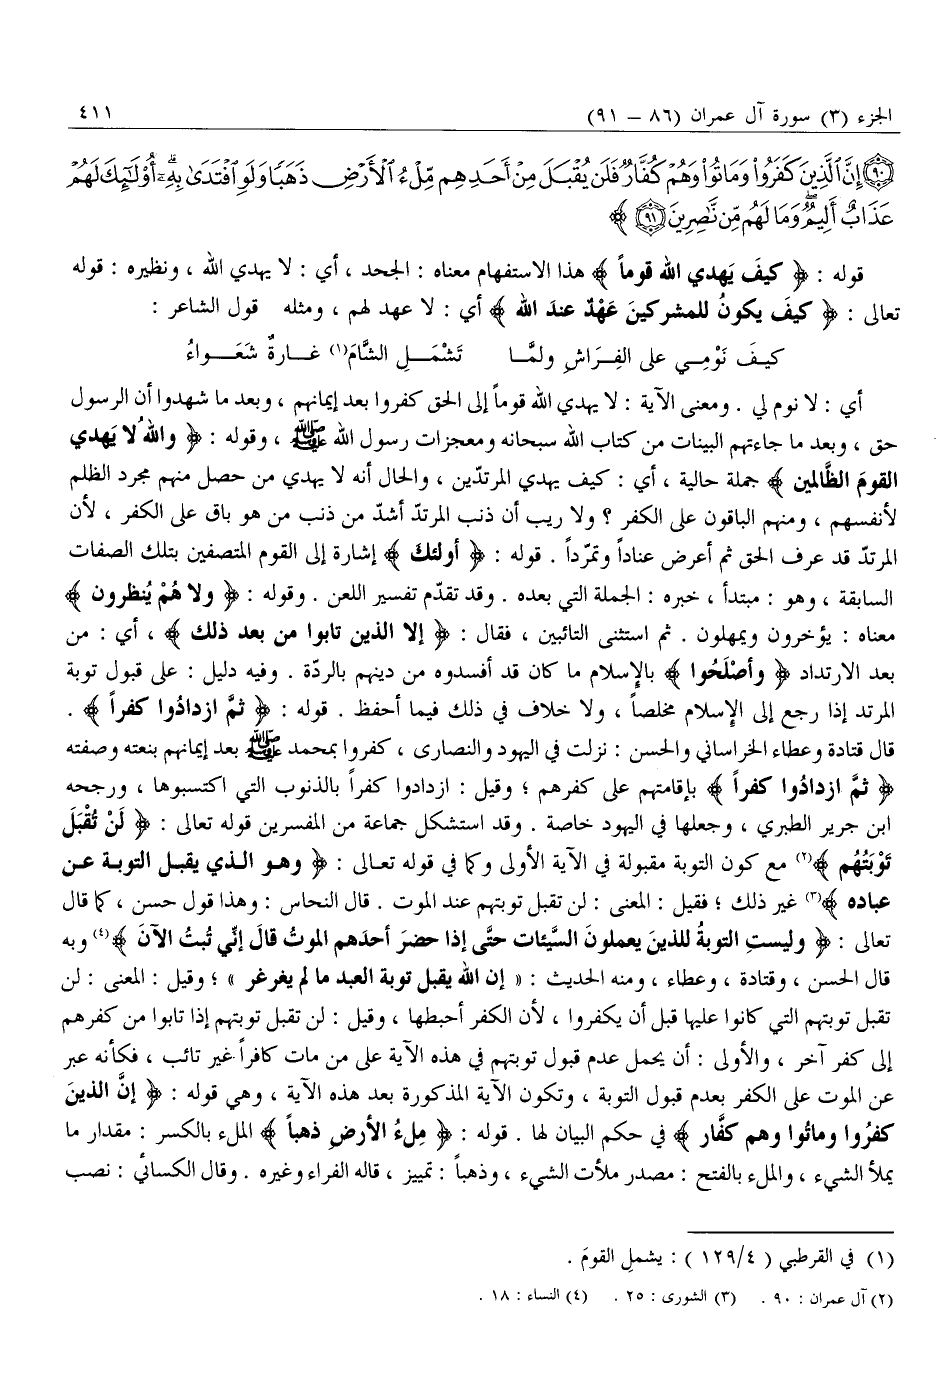 الجزء (٣) سورة آل عمران (٨٦ – ٩١) ٤١١
﴿٩٠﴾ إِنَّ ٱلَّذِينَ كَفَرُوا۟ وَمَاتُوا۟ وَهُمْ كُفَّارٌ فَلَن يُقْبَلَ مِنْ أَحَدِهِم مِّلْءُ ٱلْأَرْضِ ذَهَبًا وَلَوِ ٱفْتَدَىٰ بِهِۦٓ ۗ أُو۟لَـٰٓئِكَ لَهُمْ
عَذَابٌ أَلِيمٌ ۖ وَمَا لَهُم مِّن نَّـٰصِرِينَ ﴿٩١﴾ ﴾
قوله : ﴿ كيفَ يَهدي الله قوماً ﴾ هذا الاستفهام معناه : الجحد ، أي : لا يهدي الله ، ونظيره : قوله
تعالى : ﴿ كيفَ يكونُ للمشركينَ عَهْدٌ عندَ الله ﴾ أي : لا عهد لهم ، ومثله قول الشاعر :
كيـفَ نَوْمِـي على الفِـرَاشِ ولمَّـا تَشْمَـــلِ الشَّامَ(١) غــارةٌ شَعَــواءُ
أي : لا نوم لي . ومعنى الآية : لا يهدي الله قوماً إلى الحق كفروا بعد إيمانهم ، وبعد ما شهدوا أن الرسول
حق ، وبعد ما جاءتهم البينات من كتاب الله سبحانه ومعجزات رسول الله ﷺ ، وقوله : ﴿ واللهُ لا يَهدي
القومَ الظَّالمين ﴾ جملة حالية ، أي : كيف يهدي المرتدّين ، والحال أنه لا يهدي من حصل منهم مجرد الظلم
لأنفسهم ، ومنهم الباقون على الكفر ؟ ولا ريب أن ذنب المرتدّ أشدّ من ذنب من هو باق على الكفر ، لأن
المرتدّ قد عرف الحق ثم أعرض عناداً وتمرّداً . قوله : ﴿ أولئك ﴾ إشارة إلى القوم المتصفين بتلك الصفات
السابقة ، وهو : مبتدأ ، خبره : الجملة التي بعده . وقد تقدّم تفسير اللعن . وقوله : ﴿ ولا هُمْ يُنظرون ﴾
معناه : يؤخرون ويمهلون . ثم استثنى التائبين ، فقال : ﴿ إلا الذين تابوا من بعد ذلك ﴾ ، أي : من
بعد الارتداد ﴿ وأصْلَحُوا ﴾ بالإسلام ما كان قد أفسدوه من دينهم بالردّة . وفيه دليل : على قبول توبة
المرتد إذا رجع إلى الإسلام مخلصاً ، ولا خلاف في ذلك فيما أحفظ . قوله : ﴿ ثمَّ ازدادُوا كفراً ﴾ .
قال قتادة وعطاء الخراساني والحسن : نزلت في اليهود والنصارى ، كفروا بمحمد ﷺ بعد إيمانهم بنعته وصفته
﴿ ثمَّ ازدادُوا كفراً ﴾ بإقامتهم على كفرهم ؛ وقيل : ازدادوا كفراً بالذنوب التي اكتسبوها ، ورجحه
ابن جرير الطبري ، وجعلها في اليهود خاصة . وقد استشكل جماعة من المفسرين قوله تعالى : ﴿ لَنْ تُقْبَلَ
تَوْبَتُهُم ﴾(٢) مع كون التوبة مقبولة في الآية الأولى وكما في قوله تعـالى : ﴿ وهـو الـذي يقبـل التوبـة عـن
عباده ﴾(٣) غير ذلك ؛ فقيل : المعنى : لن تقبل توبتهم عند الموت . قال النحاس : وهذا قول حسن ، كما قال
تعالى : ﴿ وليستِ التوبةُ للذينَ يعملونَ السَّيئات حتَّى إذا حضرَ أحدَهم الموتُ قالَ إنِّي تُبتُ الآنَ ﴾(٤) وبه
قال الحسن ، وقتادة ، وعطاء ، ومنه الحديث : « إن الله يقبل توبة العبد ما لم يغرغر » ؛ وقيل : المعنى : لن
تقبل توبتهم التي كانوا عليها قبل أن يكفروا ، لأن الكفر أحبطها ، وقيل : لن تقبل توبتهم إذا تابوا من كفرهم
إلى كفر آخر ، والأولى : أن يحمل عدم قبول توبتهم في هذه الآية على من مات كافراً غير تائب ، فكأنه عبر
عن الموت على الكفر بعدم قبول التوبة ، وتكون الآية المذكورة بعد هذه الآية ، وهي قوله : ﴿ إنَّ الذينَ
كفرُوا وماتُوا وهم كفَّار ﴾ في حكم البيان لها . قوله : ﴿ مِلءُ الأرضِ ذهباً ﴾ الملء بالكسر : مقدار ما
يملأ الشيء ، والملء بالفتح : مصدر ملأت الشيء ، وذهباً : تمييز ، قاله الفراء وغيره . وقال الكسائي : نصب
(١) في القرطبي ( ١٢٩/٤ ) : يشملِ القومَ .
(٢) آل عمران : ٩٠ . (٣) الشورى : ٢٥ . (٤) النساء : ١٨ .